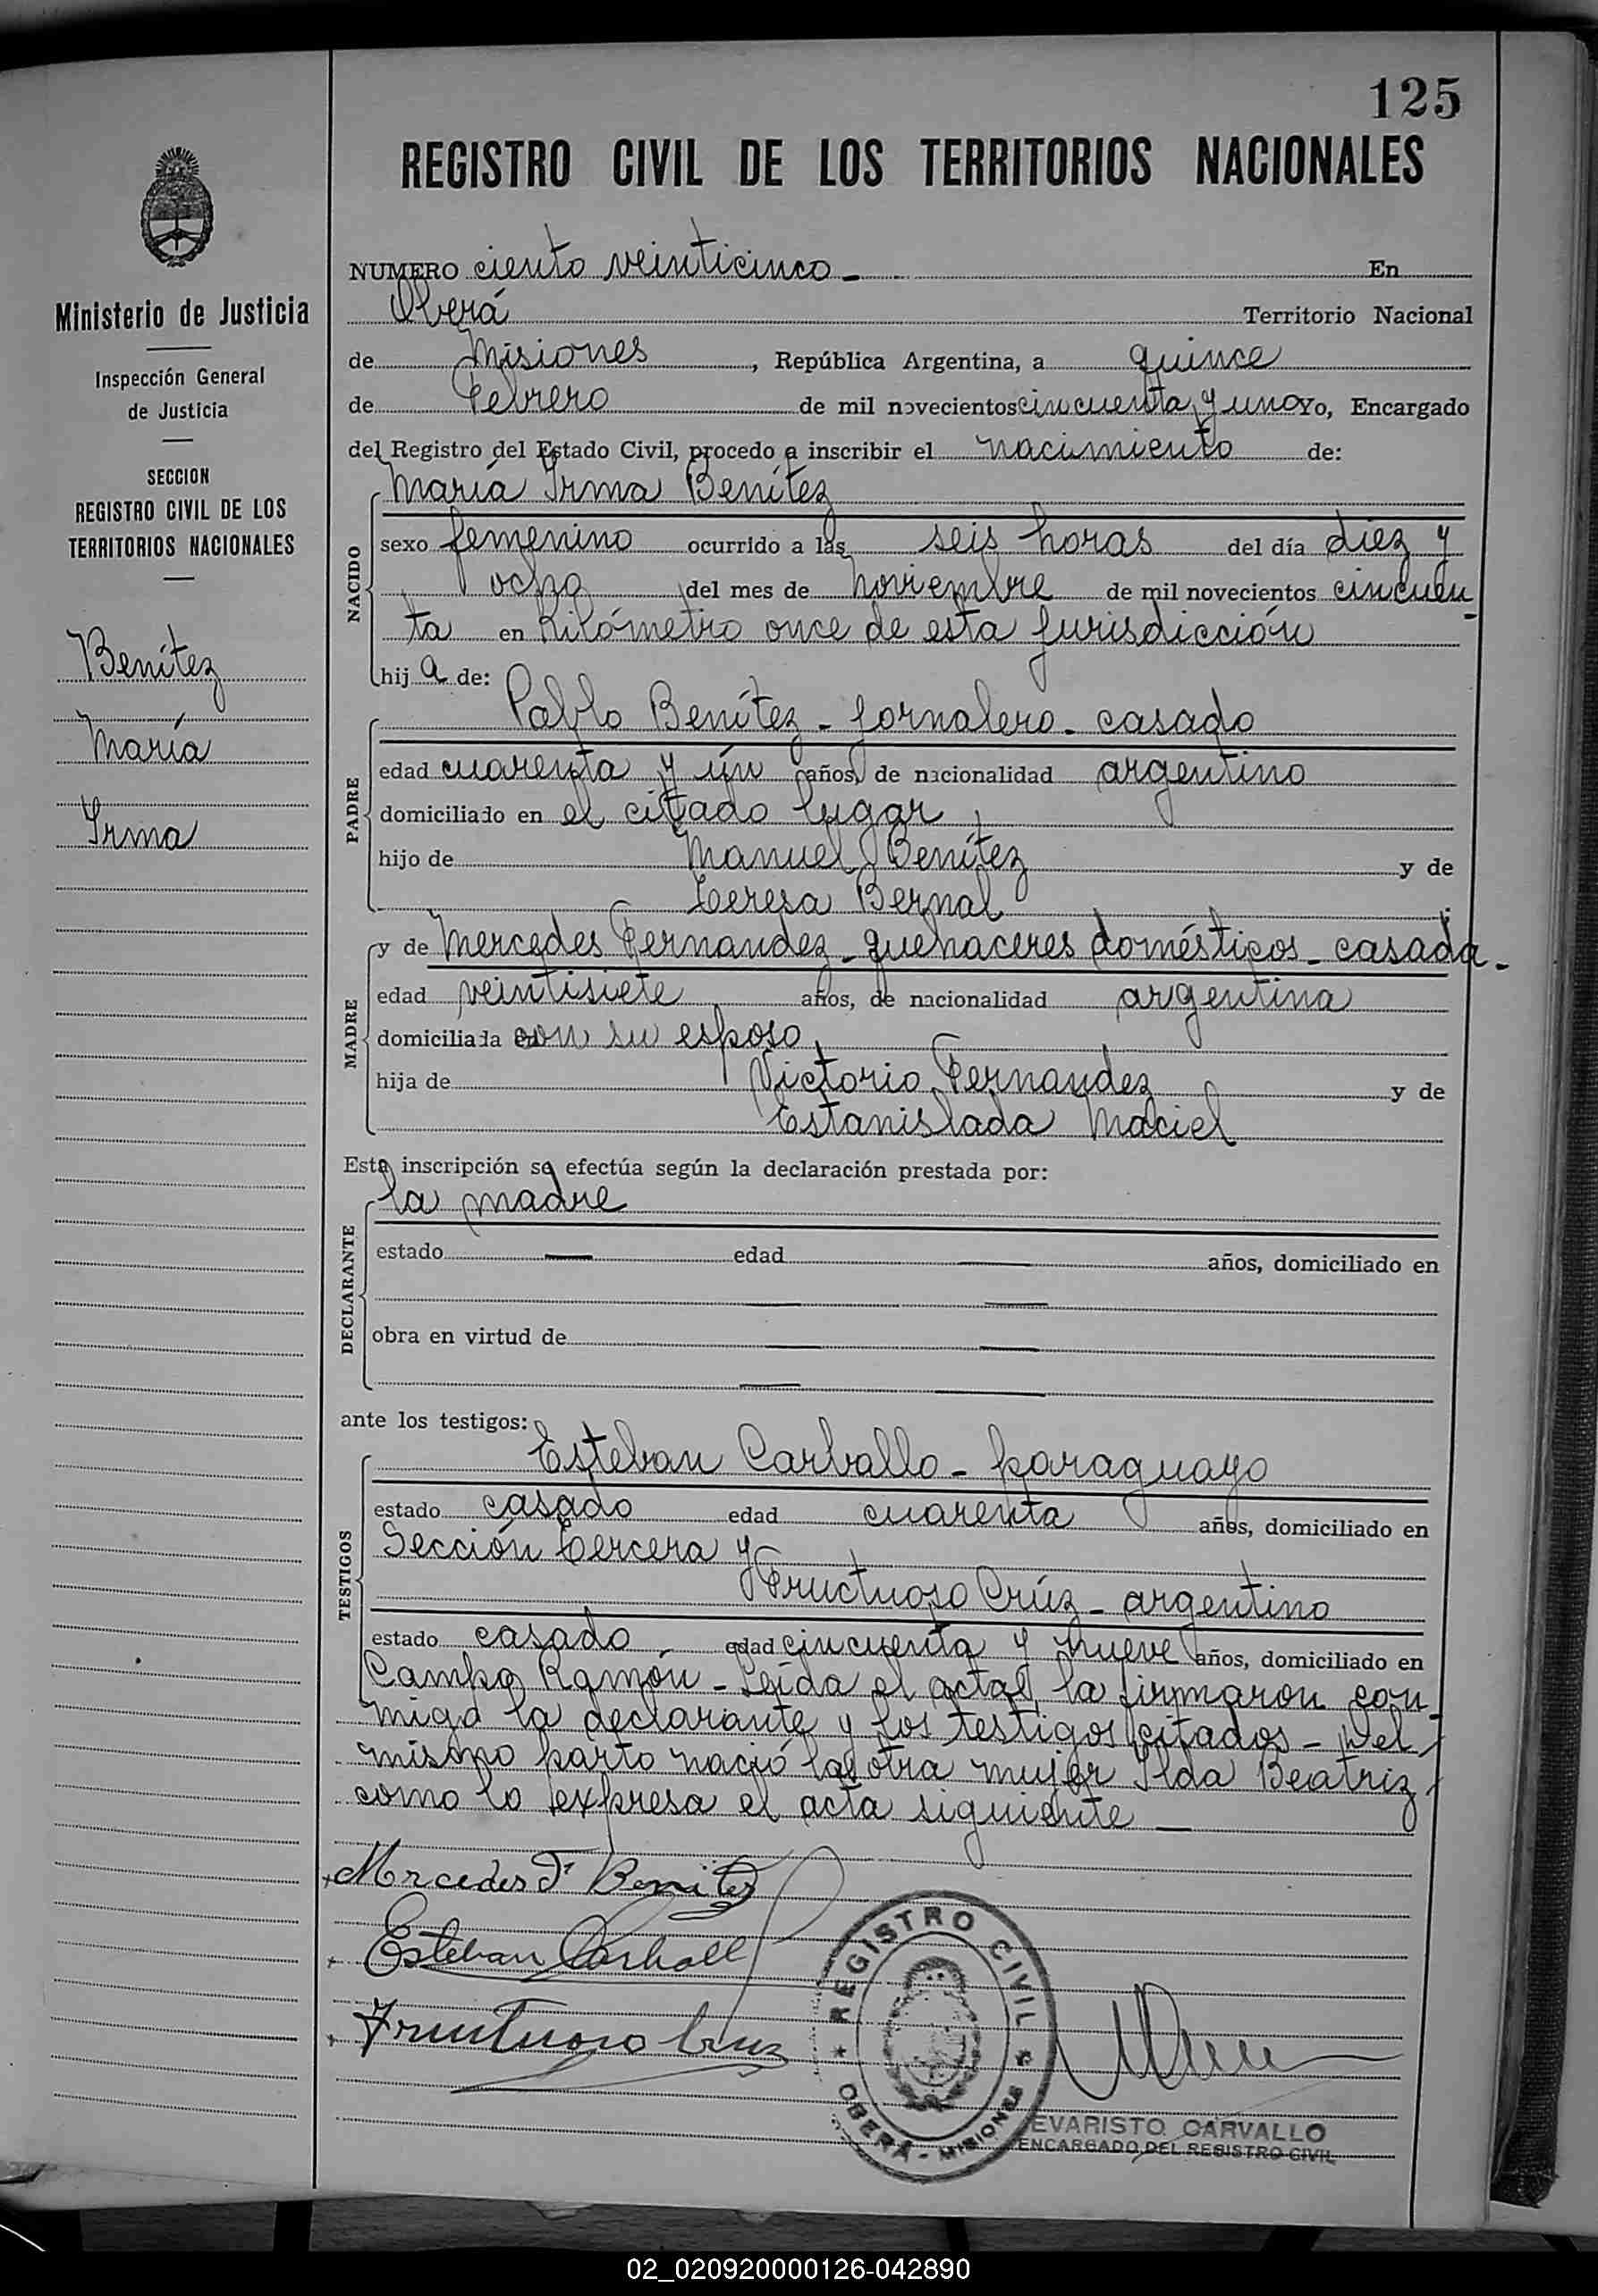 125
REGISTRO CIVIL DE LOS TERRITORIOS NACIONALES
Ministerio de Justicia
Inspección General
de Justicia
SECCION
REGISTRO CIVIL DE LOS
TERRITORIOS NACIONALES
Benítez
María
Irma
NUMERO ciento veinticinco - En
Oberá Territorio Nacional
de Misiones, República Argentina, a quince
de Febrero de mil novecientos cincuenta y uno Yo, Encargado
del Registro del Estado Civil, procedo a inscribir el nacimiento de:
NACIDO
María Irma Benítez
sexo femenino ocurrido a las seis horas del día diez y
ocho del mes de noviembre de mil novecientos cincuen-
ta en Kilómetro once de esta jurisdicción
hija de:
PADRE
Pablo Benítez - jornalero - casado
edad cuarenta y ún años, de nacionalidad argentino
domiciliado en el citado lugar
hijo de Manuel Benítez y de
Teresa Bernal
MADRE
y de Mercedes Fernandez - quehaceres domésticos - casada -
edad veintisiete años, de nacionalidad argentina
domiciliada con su esposo
hija de Victorio Fernandez y de
Estanislada Maciel
Esta inscripción se efectúa según la declaración prestada por:
DECLARANTE
la madre
estado — edad — años, domiciliado en
— —
obra en virtud de — —
— —
ante los testigos:
TESTIGOS
Esteban Carballo - paraguayo
estado casado edad cuarenta años, domiciliado en
Sección tercera y
Fructuoso Crúz - argentino
estado casado - edad cincuenta y nueve años, domiciliado en
Campo Ramón - Leída el acta, la firmaron con-
migo la declarante y los testigos citados - Del
mismo parto nació la otra mujer Ilda Beatriz
como lo expresa el acta siguiente —
Mercedes F. Benitez
Esteban Carball
Fructuoso Cruz
REGISTRO CIVIL
OBERÁ - MISIONES
EVARISTO CARVALLO
ENCARGADO DEL REGISTRO CIVIL
02_020920000126-042890